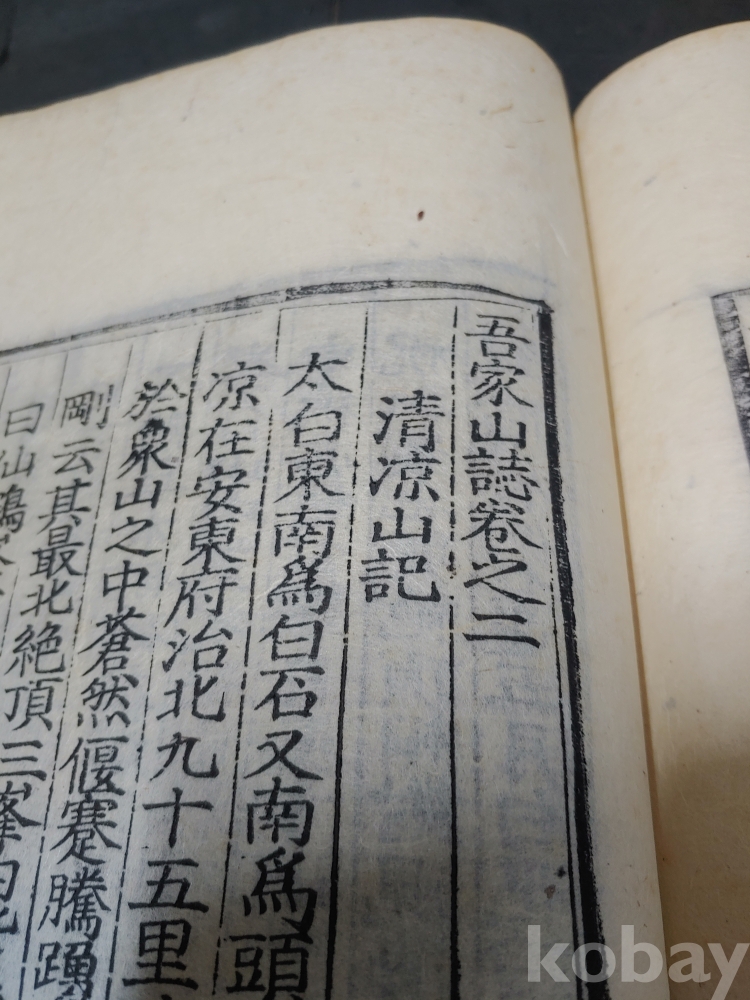 吾家山誌卷之二
清凉山記
太白東南爲白石又南爲頭
凉在安東府治北九十五里
於衆山之中蒼然偃蹇騰踴
剛云其最北絶頂三峯曰
曰仙鶴
kobay